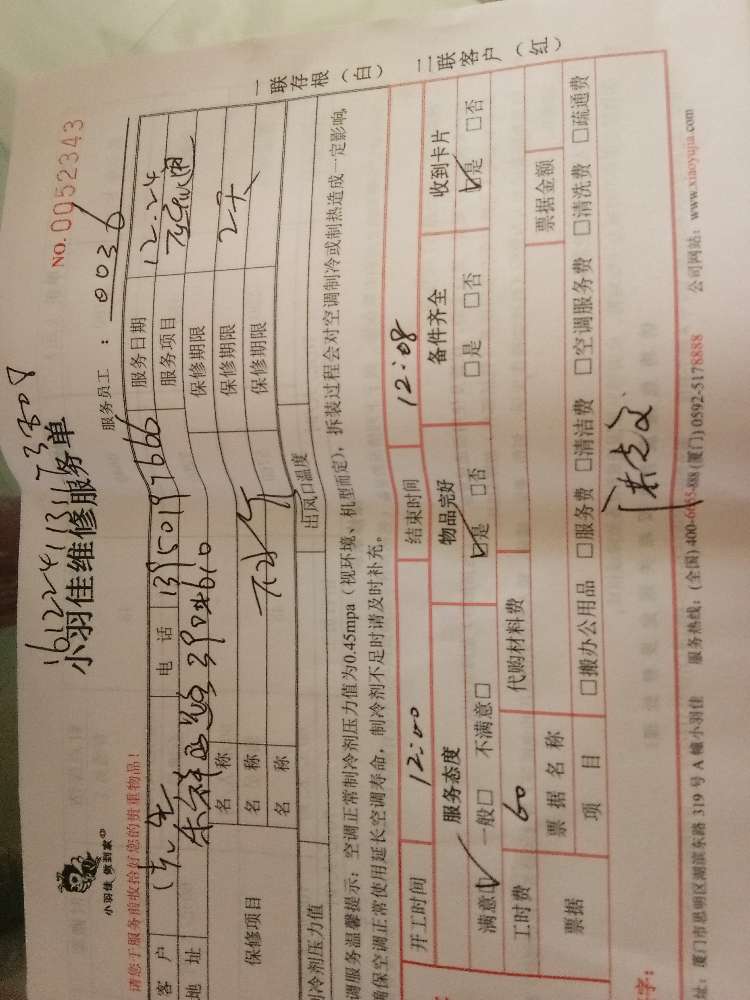 161224113173508
小羽佳 做到家
小羽佳维修服务单
NO. 0052343
请您于服务前收拾好您的贵重物品!
服务员工 : 0036
客 户
电 话
服务日期 12.24
地 址
服务项目
保修项目
名 称
保修期限
名 称
保修期限 2天
名 称
保修期限
制冷剂压力值
出风口温度
调服务温馨提示: 空调正常制冷剂压力值为0.45mpa(视环境、机型而定), 拆装过程会对空调制冷或制热造成一定影响,
确保空调正常使用延长空调寿命, 制冷剂不足时请及时补充。
一联存根(白) 二联客户(红)
开工时间 12:00 结束时间 12:08
服务态度 物品完好 备件齐全 收到卡片
满意□ 一般□ 不满意□ □是 □否 □是 □否 □是 □否
工时费 60 代购材料费
票据 票据名称 票据金额
项 目 □搬办公用品 □服务费 □清洁费 □空调服务费 □清洗费 □疏通费
字:
址: 厦门市思明区湖滨东路 319 号 A 幢小羽佳 服务热线: (全国) (厦门) 0592-5178888 公司网站: www.xiaoyujia.com